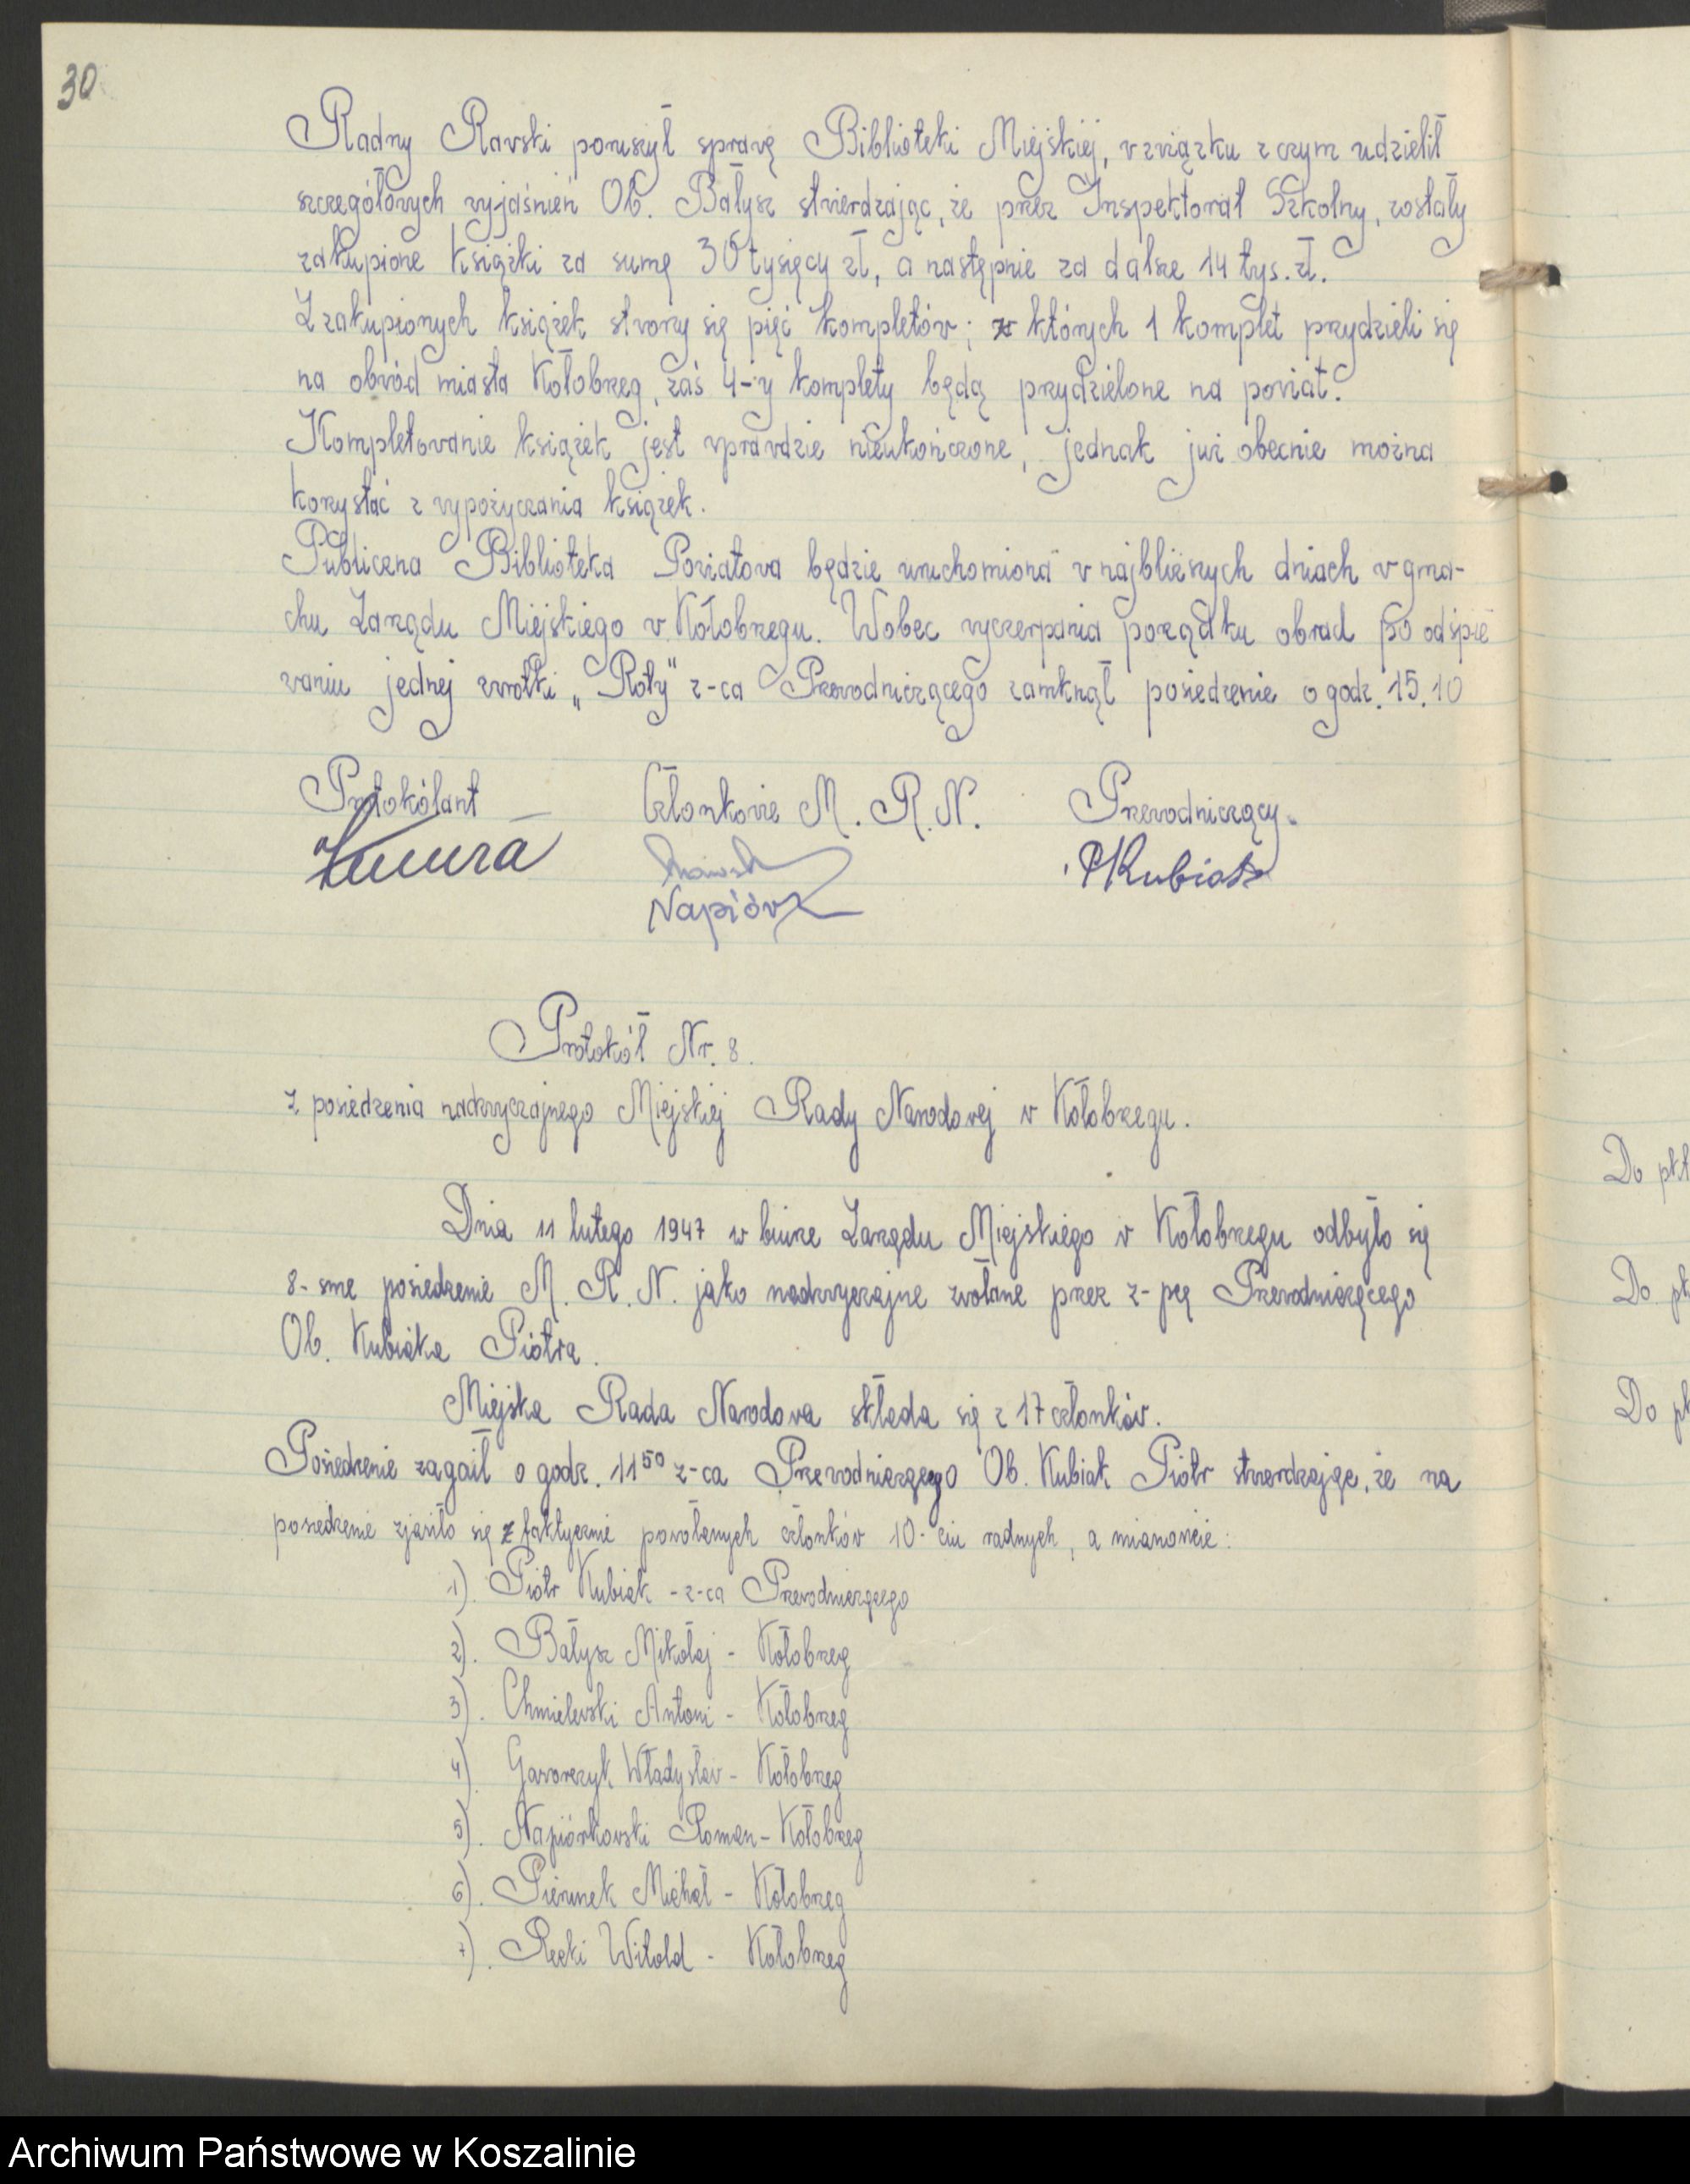 30
Radny Rawski poruszył sprawę Biblioteki Miejskiej, w związku z czym udzielił
szczegółowych wyjaśnień Ob. Bałysz stwierdzając, że przez Inspektorat Szkolny, zostały
zakupione książki za sumę 30 tysięcy zł, a następnie za dalsze 14 tys. zł.
Z zakupionych książek stworzy się pięć kompletów; z których 1 komplet przydzieli się
na obwód miasta Kołobrzeg, zaś 4-y komplety będą przydzielone na powiat.
Kompletowanie książek jest wprawdzie nieukończone, jednak już obecnie można
korzystać z wypożyczania książek.
Publiczna Biblioteka Powiatowa będzie uruchomiona w najbliższych dniach w gma-
chu Zarządu Miejskiego w Kołobrzegu. Wobec wyczerpania porządku obrad po odśpie
waniu jednej zwrotki „Roty" z-ca Przewodniczącego zamknął posiedzenie o godz. 15.10
Protokólant Członkowie M. R. N. Przewodniczący.
Kubiak
Napiórk
Protokół Nr. 8.
Z posiedzenia nadzwyczajnego Miejskiej Rady Narodowej w Kołobrzegu.
Dnia 11 lutego 1947 w biurze Zarządu Miejskiego w Kołobrzegu odbyło się
8-sme posiedzenie M. R. N. jako nadzwyczajne zwołane przez z-pcę Przewodniczącego
Ob. Kubiaka Piotra.
Miejska Rada Narodowa składa się z 17 członków.
Posiedzenie zagaił o godz. 11⁵⁰ z-ca Przewodniczącego Ob. Kubiak Piotr stwierdzając, że na
posiedzenie zjawiło się z faktycznie powołanych członków 10-ciu radnych, a mianowicie:
1). Piotr Kubiak - z-ca Przewodniczącego
2). Bałysz Mikołaj - Kołobrzeg
3). Chmielewski Antoni - Kołobrzeg
4). Gaworczyk Władysław - Kołobrzeg
5). Napiórkowski Roman - Kołobrzeg
6). Pierunek Michał - Kołobrzeg
7). Recki Witold - Kołobrzeg
Do pkt
Do pk
Do pk
Archiwum Państwowe w Koszalinie